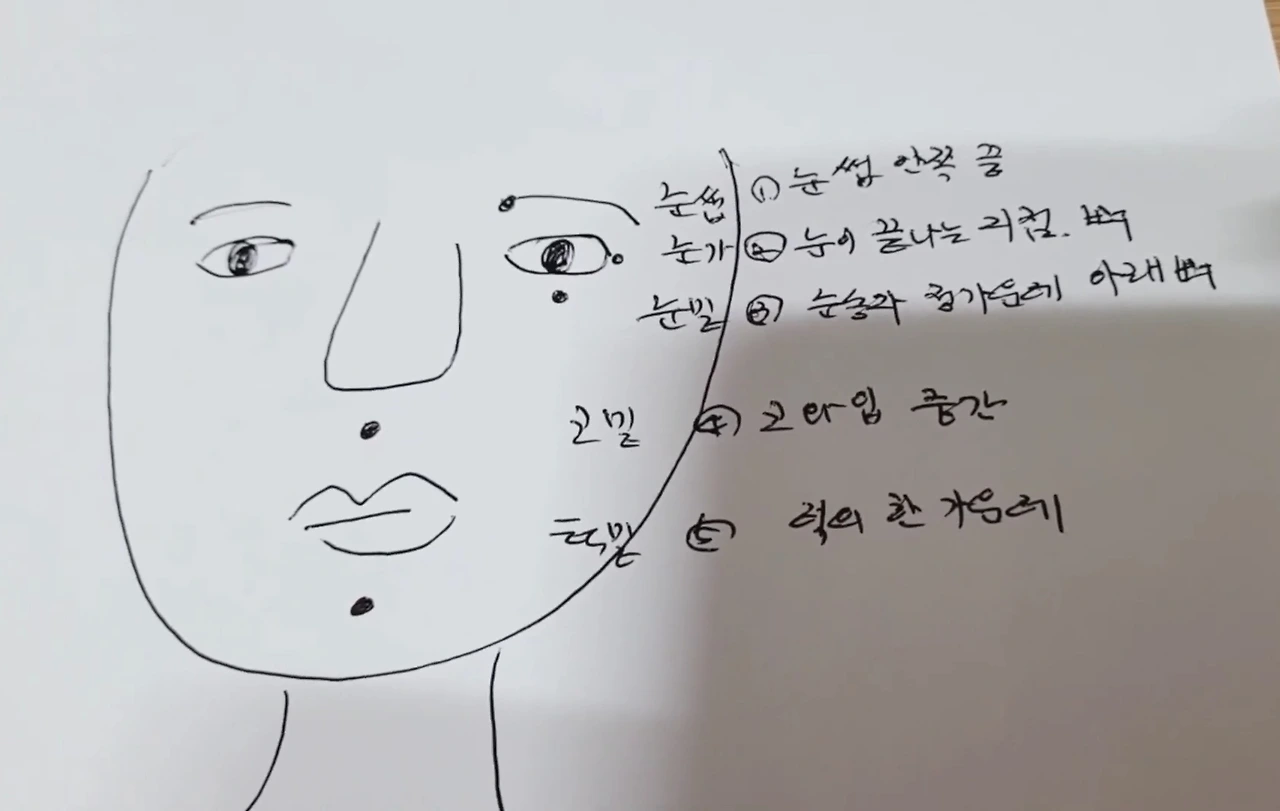 눈썹 ① 눈썹 안쪽 끝
눈가 ② 눈이 끝나는 지점. 뼈
눈밑 ③ 눈동자 정가운데 아래 뼈
코밑 ④ 코와 입 중간
턱밑 ⑤ 턱의 한 가운데